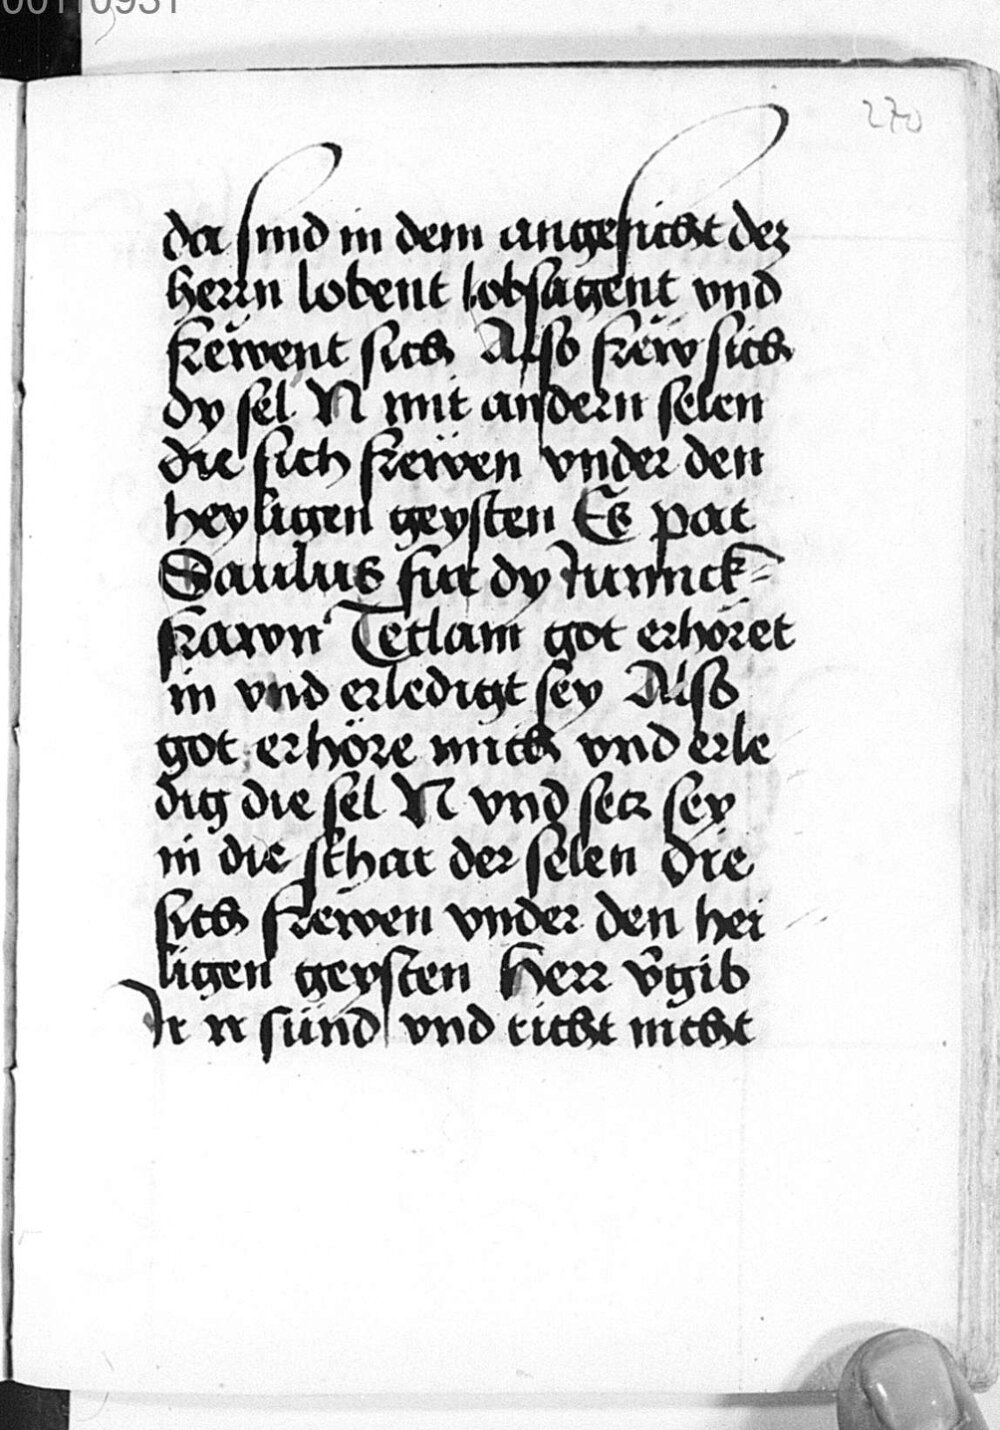 00110931
270
da sind in dem angesicht dez
herrn lobent lobsagent vnd
frewent sich Also frew sich
dy sel N mit andern selen
die sich frewen vnder den
heyligen geysten Es pat
Paulus fur dy Junnck-
frawn Teclam got erhöret
in vnd erledigt sey Also
got erhöre mich vnd erle
dig die sel N vnd secz sey
in die schar der selen die
sich frewen vnder den hei
ligen geysten Herr v̄gib
Ir ir sünd vnd richt nicht